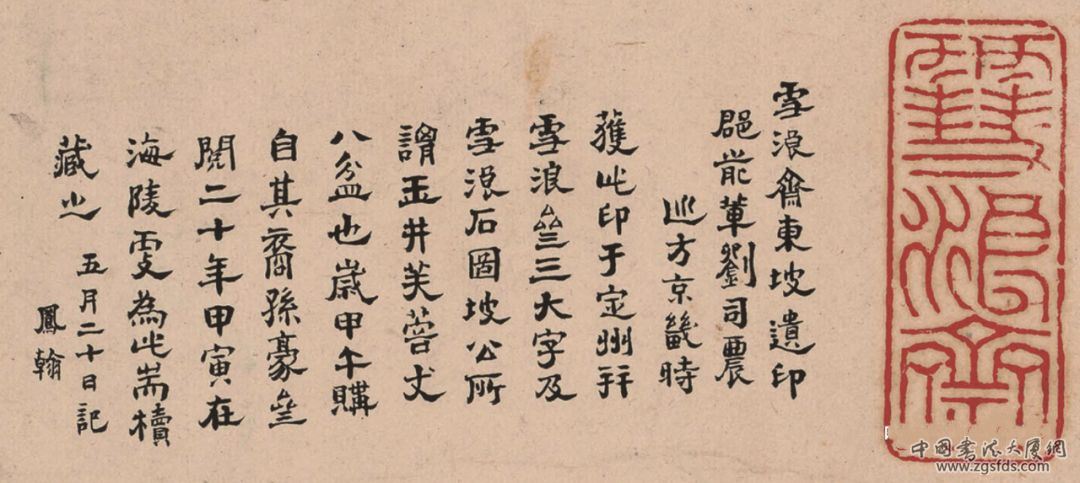 雪浪齋
雪浪齊東坡遺印
前輩劉司農
巡方京畿時
獲此印于定州并
雪浪亝三大字及
雪浪石圖坡公所
謂玉井芙蓉丈
八盆也歲甲午購
自其裔孫豪亝
閱二十年甲寅在
海陵更為此耑櫝
藏之 五月二十日記
鳳翰
中国書法大廈網
www.zgsfds.com